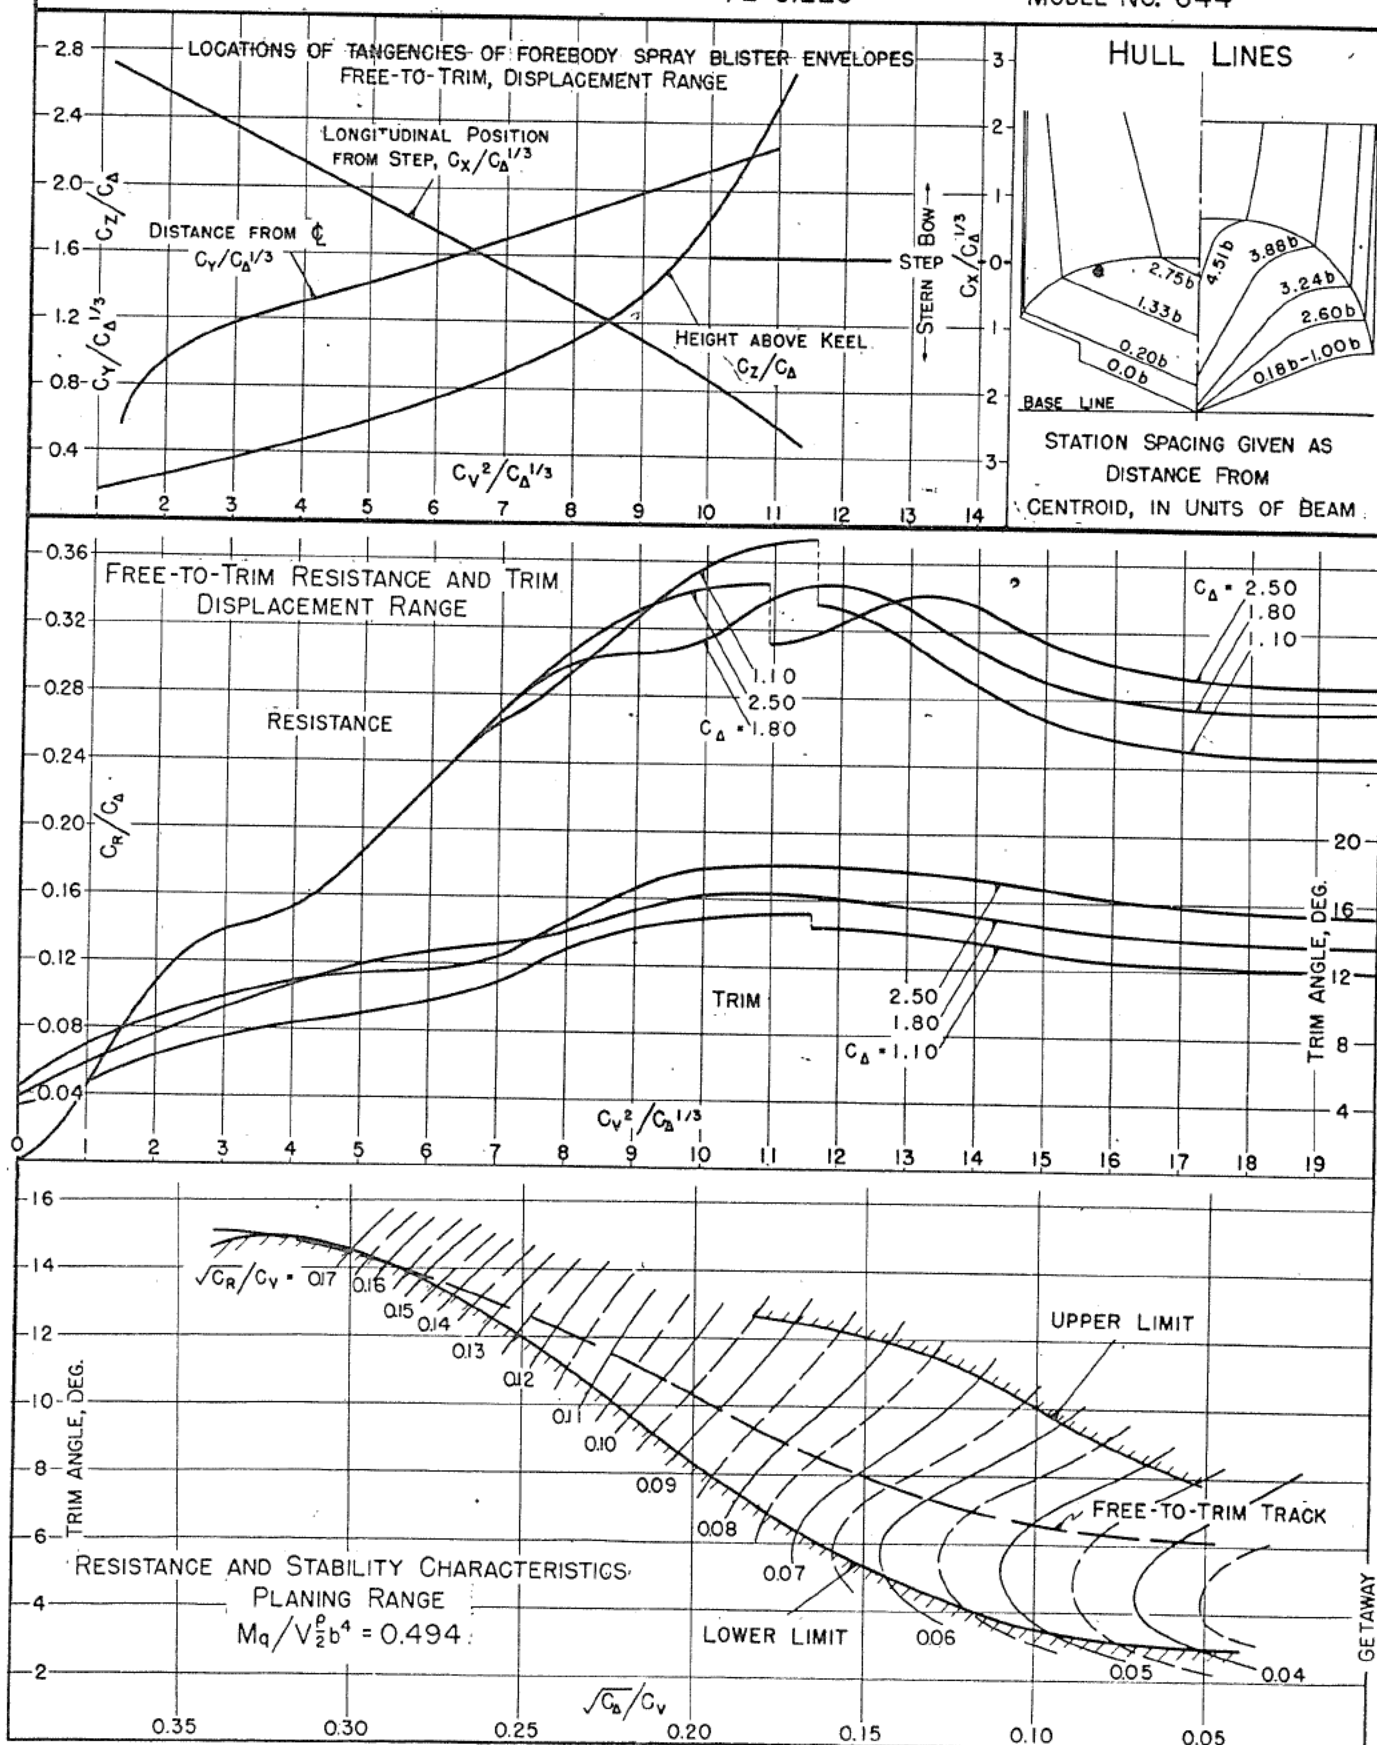 MODEL NO. 644
LOCATIONS OF TANGENCIES OF FOREBODY SPRAY BLISTER ENVELOPES
FREE-TO-TRIM, DISPLACEMENT RANGE
LONGITUDINAL POSITION
FROM STEP, C_X/C_Δ^1/3
DISTANCE FROM ℄
C_Y/C_Δ^1/3
HEIGHT ABOVE KEEL
C_Z/C_Δ
C_Z/C_Δ
C_Y/C_Δ^1/3
2.8
2.4
2.0
1.6
1.2
0.8
0.4
C_V²/C_Δ^1/3
1 2 3 4 5 6 7 8 9 10 11 12 13 14
←STERN BOW→
STEP
C_X/C_Δ^1/3
3
2
1
0
1
2
3
HULL LINES
2.75b
1.33b
0.20b
0.0b
4.51b
3.88b
3.24b
2.60b
0.18b-1.00b
BASE LINE
STATION SPACING GIVEN AS
DISTANCE FROM
CENTROID, IN UNITS OF BEAM
FREE-TO-TRIM RESISTANCE AND TRIM
DISPLACEMENT RANGE
0.36
0.32
0.28
0.24
0.20
0.16
0.12
0.08
0.04
C_R/C_Δ
RESISTANCE
1.10
2.50
C_Δ = 1.80
C_Δ = 2.50
1.80
1.10
TRIM
2.50
1.80
C_Δ = 1.10
20
16
12
8
4
TRIM ANGLE, DEG.
C_V²/C_Δ^1/3
0 1 2 3 4 5 6 7 8 9 10 11 12 13 14 15 16 17 18 19
16
14
12
10
8
6
4
2
TRIM ANGLE, DEG.
√C_R/C_V = 0.17
0.16
0.15
0.14
0.13
0.12
0.11
0.10
0.09
0.08
0.07
0.06
0.05
0.04
UPPER LIMIT
FREE-TO-TRIM TRACK
LOWER LIMIT
RESISTANCE AND STABILITY CHARACTERISTICS
PLANING RANGE
Mq/V ρ/2 b⁴ = 0.494
GETAWAY
√C_Δ/C_V
0.35 0.30 0.25 0.20 0.15 0.10 0.05